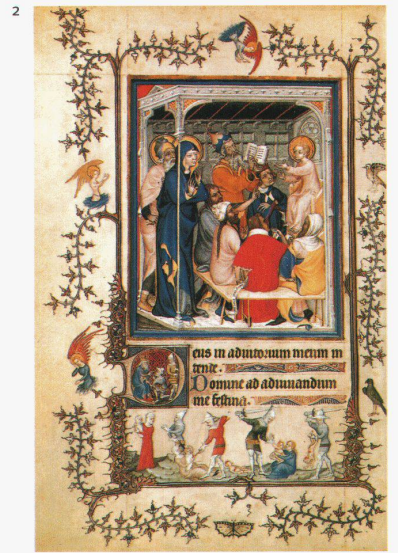 2
Deus in adiutorium meum in
tende.
Domine ad adiuuandum
me festina.